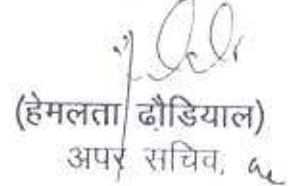 (हेमलता ढौडियाल)
अपर सचिव,